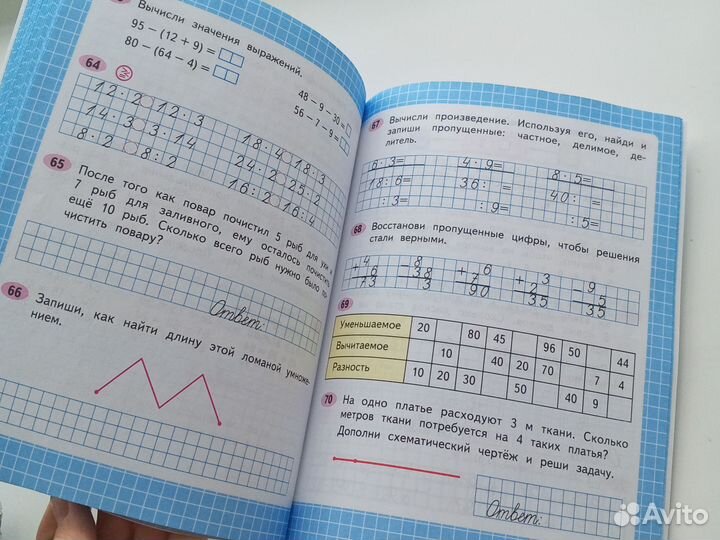 Вычисли значения выражений.
95 − (12 + 9) =
80 − (64 − 4) =
48 − 9 − 30 =
56 − 7 − 9 =
64
12 · 2 12 · 3 18 · 4 18 · 3
14 · 3 3 · 14 24 · 2 25 · 2
8 · 2 8 : 2 16 : 2 16 : 4
65 После того как повар почистил 5 рыб для ухи и
7 рыб для заливного, ему осталось почистить
ещё 10 рыб. Сколько всего рыб нужно было по-
чистить повару?
Ответ:
66 Запиши, как найти длину этой ломаной умноже-
нием.
67 Вычисли произведение. Используя его, найди и
запиши пропущенные: частное, делимое, де-
литель.
6 · 3 = 4 · 9 = 8 · 5 =
18 : 6 = 36 : = 40 : =
: 3 = : 9 = : 5 =
68 Восстанови пропущенные цифры, чтобы решения
стали верными.
+ 4 − 8 + 6 + 3 − 9
6 38 7 2 5
73 3 90 35 35
69
Уменьшаемое 20 80 45 96 50 44
Вычитаемое 10 40 20 70 7 4
Разность 10 20 30 50 40 9
70 На одно платье расходуют 3 м ткани. Сколько
метров ткани потребуется на 4 таких платья?
Дополни схематический чертёж и реши задачу.
Ответ:
Avito